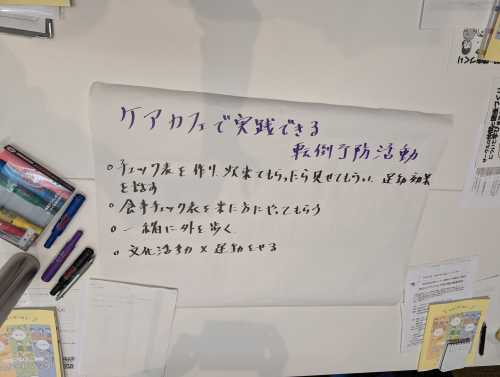 ケアカフェで実践できる
転倒予防活動
○ チェック表を作り、次来てもらったら見せてもらい、運動効果
を話す
○ 食事チェック表を来た方にやってもらう
○ 一緒に外を歩く
○ 文化活動×運動をせる